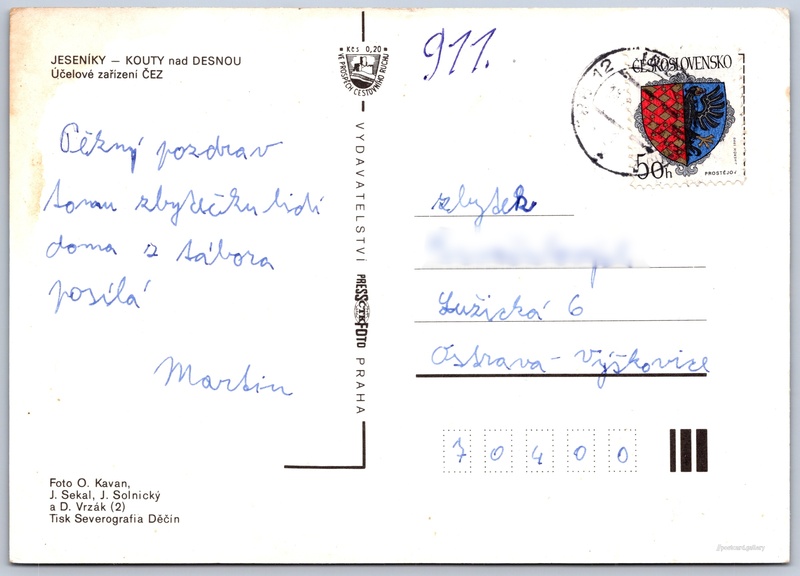 JESENÍKY — KOUTY nad DESNOU
Účelové zařízení ČEZ
Pěkný pozdrav
tomu zbytečku lidí
doma z tábora
posílá
Martin
Foto O. Kavan,
J. Sekal, J. Solnický
a D. Vrzák (2)
Tisk Severografia Děčín
Kčs 0,20
VE PROSPĚCH CESTOVNÍHO RUCHU
VYDAVATELSTVÍ PRESSFOTO PRAHA
ČTK
911.
12
ČESKOSLOVENSKO
50h
PROSTĚJOV
zbytek
Lužická 6
Ostrava - Výškovice
70400
//postcard.gallery